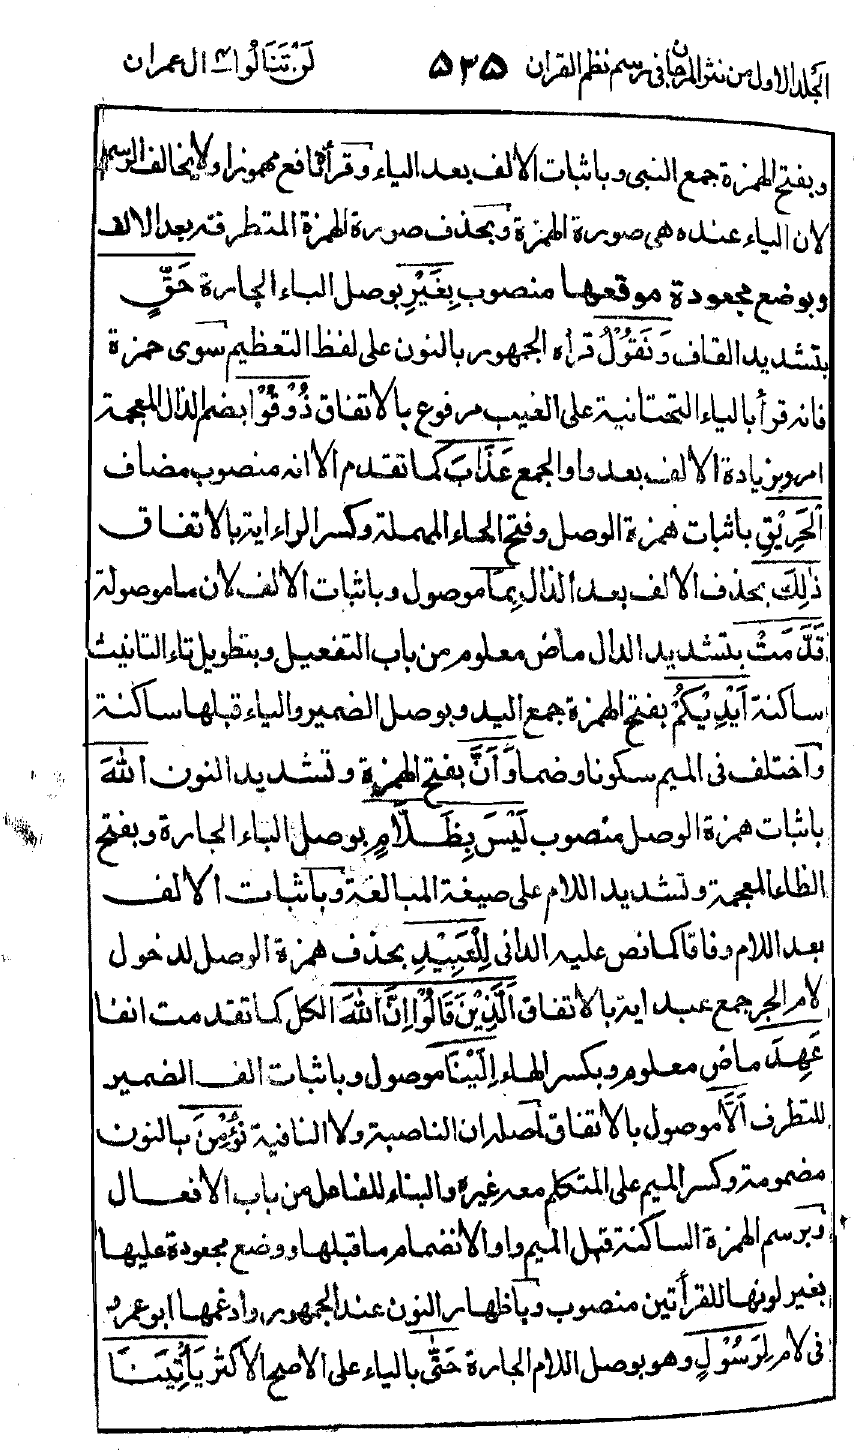 الجلد الاول من نثر المرجان فى رسم نظم القران ٥٣٥ لَنْ تَنَالُوا ال عمران
وبفتح الهمزة جمع النبى وباثبات الالف بعد الياء وقرأه نافع مهموزا ولا يخالف الرسم
لان الياء عنده هى صورة الهمزة وبحذف صورة الهمزة المتطرفة بعد الالف
وبوضع مجعودة موقعها منصوب بِغَيْرِ بوصل الباء الجارة حَقٍّ
بتشديد القاف وَنَقُوْلُ قرأه الجمهور بالنون على لفظ التعظيم سوى حمزة
فانه قرأ بالياء التحتانية على الغيب مرفوع بالاتفاق ذُوْقُوْا بضم الذال المعجمة
امر وبزيادة الالف بعد واو الجمع عَذَابَ كما تقدم الا انه منصوب مضاف
الْحَرِيْقِ باثبات همزة الوصل وفتح الحاء المهملة وكسر الراء اية بالاتفاق
ذٰلِكَ بحذف الالف بعد الذال بِمَا موصول وباثبات الالف لان ما موصولة
قَدَّمَتْ بتشديد الدال ماض معلوم من باب التفعيل وبتطويل تاء التانيث
ساكنة اَيْدِيْكُمْ بفتح الهمزة جمع اليد وبوصل الضمير والياء قبلها ساكنة
واختلف فى الميم سكونا وضما وَاَنَّ بفتح الهمزة وتشديد النون اللهَ
باثبات همزة الوصل منصوب لَيْسَ بِظَلَّامٍ بوصل الباء الجارة وبفتح
الظاء المعجمة وتشديد اللام على صيغة المبالغة وباثبات الالف
بعد اللام وفاقا كما نص عليه الدانى لِلْعَبِيْدِ بحذف همزة الوصل لدخول
لام الجر جمع عبد اية بالاتفاق اَلَّذِيْنَ قَالُوْا اِنَّ اللهَ الكل كما تقدمت انفا
عَهِدَ ماض معلوم وبكسر الهاء اِلَيْنَا موصول وباثبات الف الضمير
للتطرف اَلَّا موصول بالاتفاق اصله ان الناصبة ولا النافية نُؤْمِنَ بالنون
مضمومة وكسر الميم على المتكلم معه غيره والبناء للفاعل من باب الافعال
وبرسم الهمزة الساكنة قبل الميم واوا لانضمام ما قبلها ووضع مجعودة عليها
بغير لونها للقرأتين منصوب وباظهار النون عند الجمهور وادغمها ابو عمرو
فى لام لِرَسُوْلٍ وهو بوصل اللام الجارة حَتّٰى بالياء على الاصح الاكثر يَأْتِيَنَا